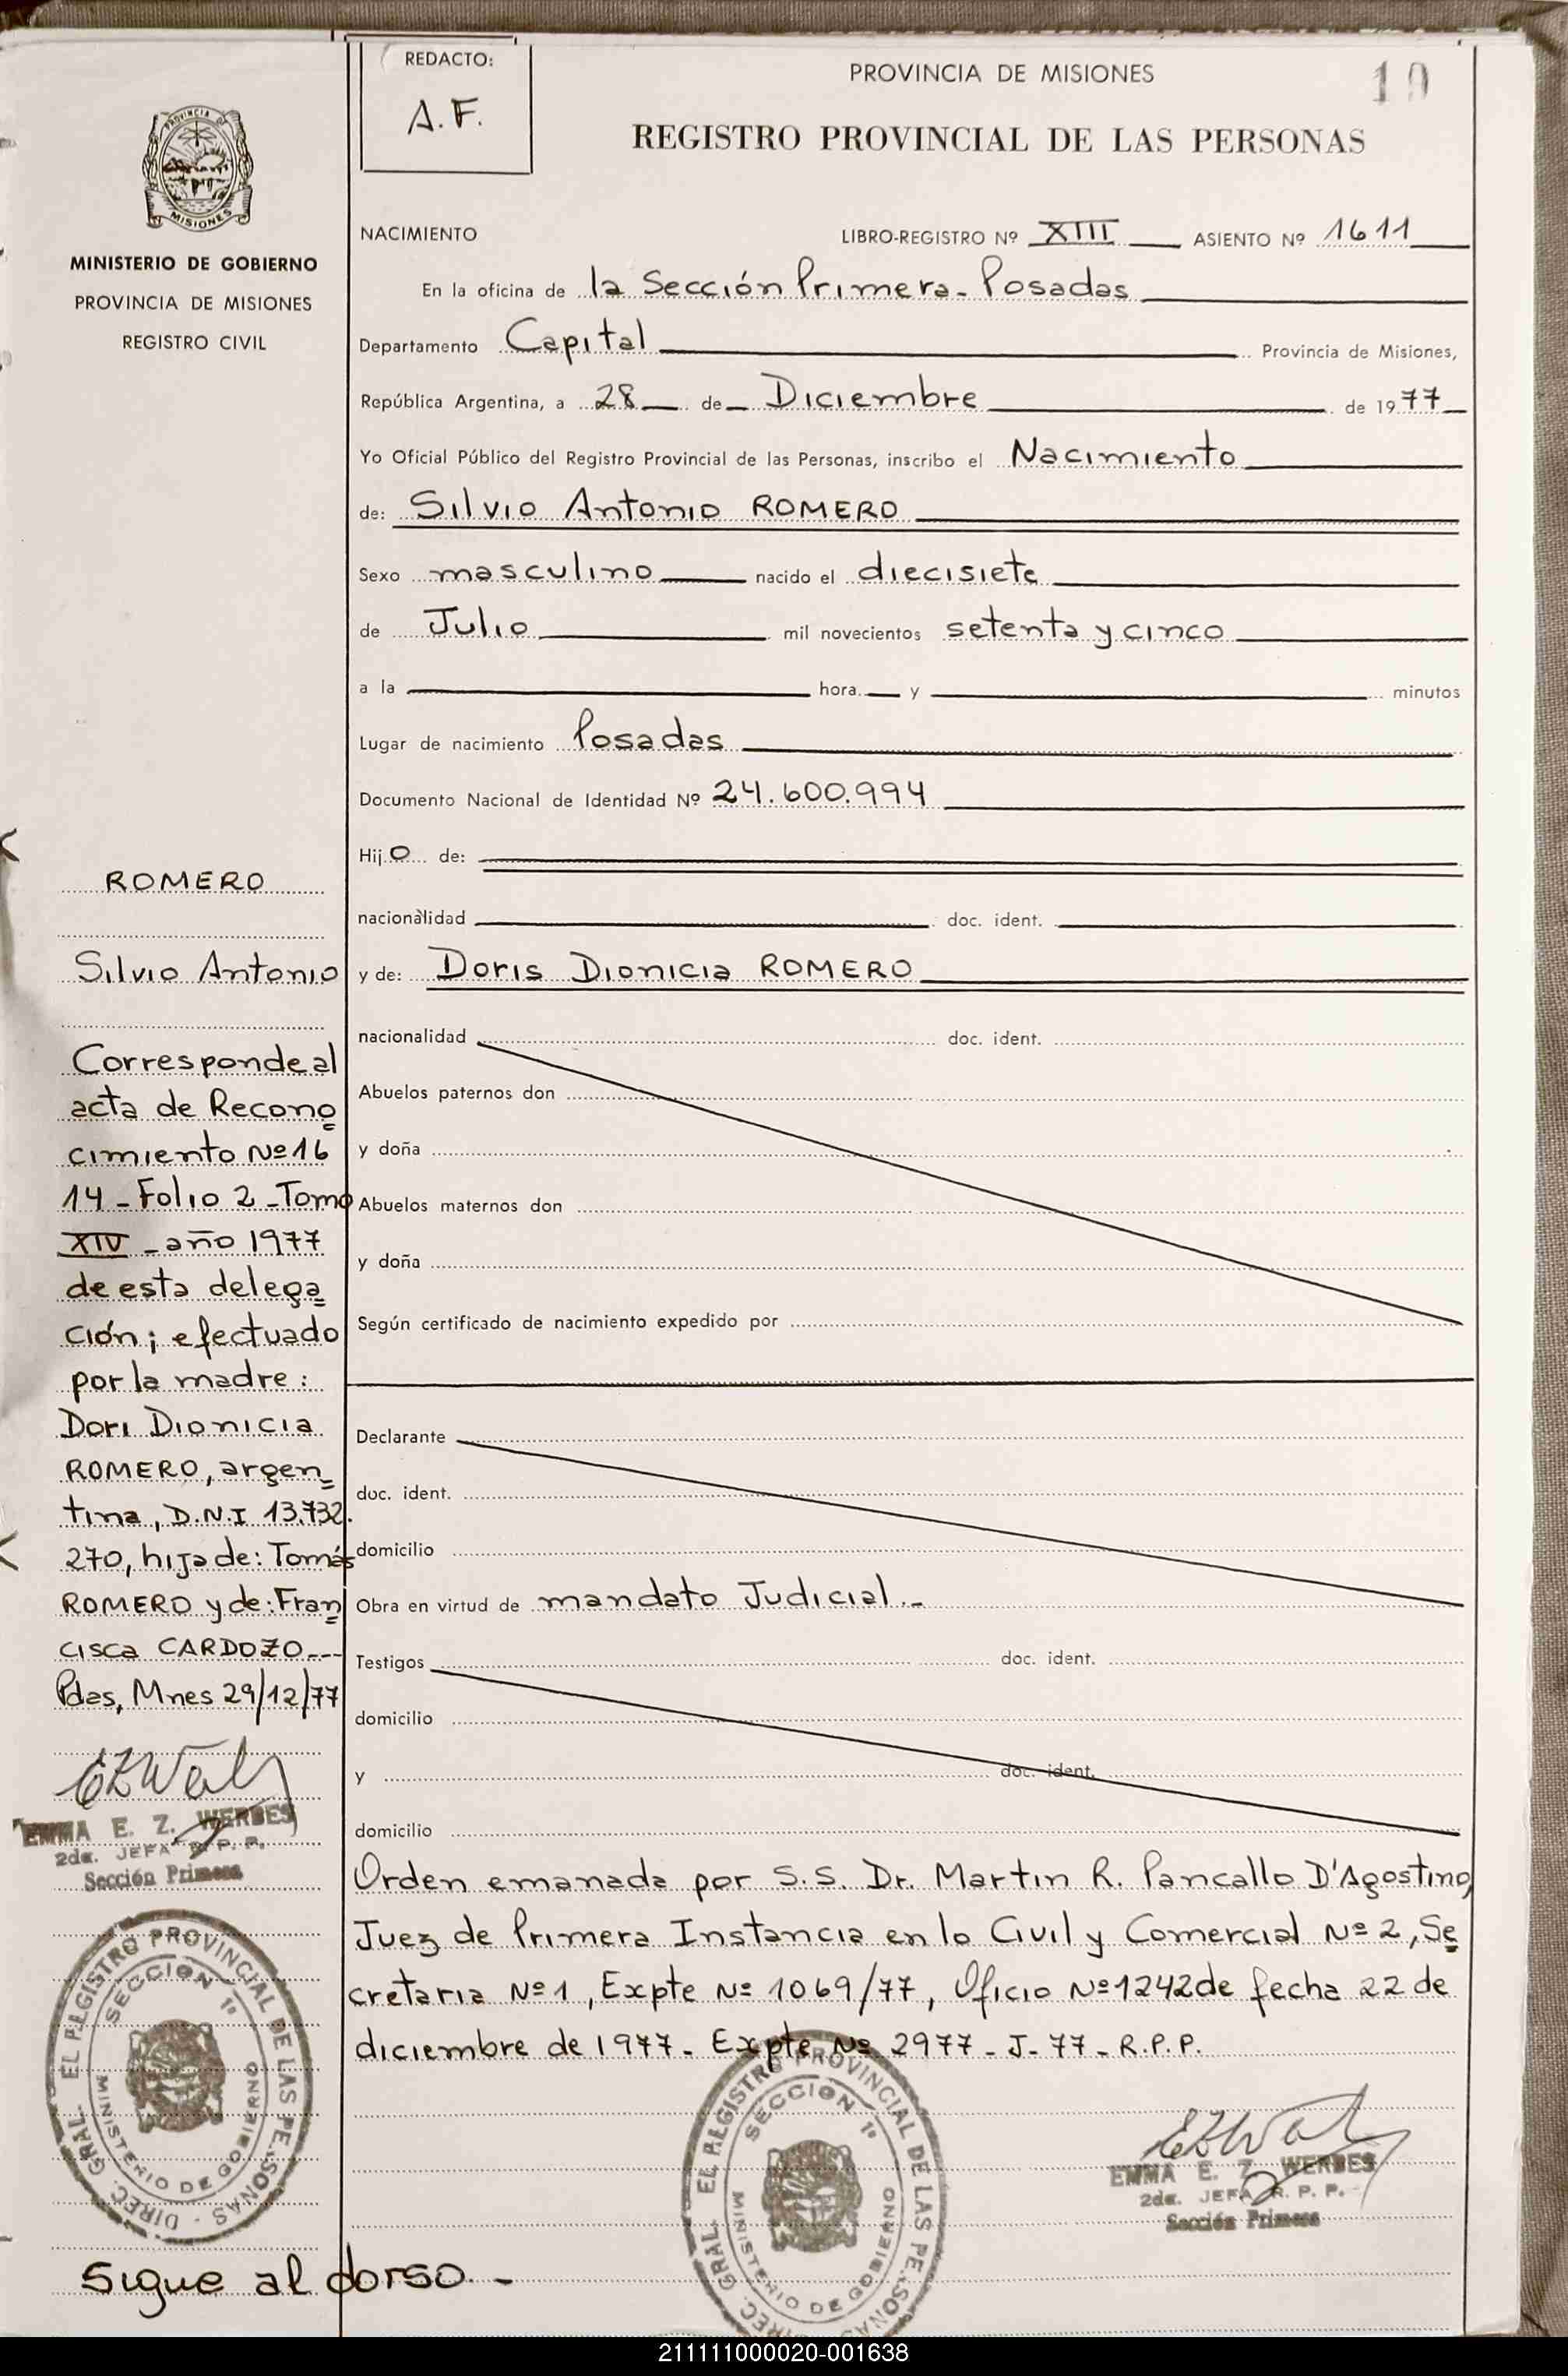 REDACTO:
A.F.
PROVINCIA DE MISIONES
10
REGISTRO PROVINCIAL DE LAS PERSONAS
PROVINCIA DE
MISIONES
MINISTERIO DE GOBIERNO
PROVINCIA DE MISIONES
REGISTRO CIVIL
NACIMIENTO LIBRO-REGISTRO Nº XIII ASIENTO Nº 1611
En la oficina de la Sección Primera - Posadas
Departamento Capital Provincia de Misiones,
República Argentina, a 28 de Diciembre de 1977
Yo Oficial Público del Registro Provincial de las Personas, inscribo el Nacimiento
de: Silvio Antonio ROMERO
Sexo masculino nacido el diecisiete
de Julio mil novecientos setenta y cinco
a la hora y minutos
Lugar de nacimiento Posadas
Documento Nacional de Identidad Nº 24.600.994
Hijo de:
nacionalidad doc. ident.
y de: Doris Dionicia ROMERO
nacionalidad doc. ident.
Abuelos paternos don
y doña
Abuelos maternos don
y doña
Según certificado de nacimiento expedido por
Declarante
doc. ident.
domicilio
Obra en virtud de mandato Judicial.-
Testigos doc. ident.
domicilio
y doc. ident.
domicilio
Orden emanada por S.S. Dr. Martin R. Pancallo D'Agostino,
Juez de Primera Instancia en lo Civil y Comercial Nº 2, Se
cretaria Nº 1, Expte Nº 1069/77, Oficio Nº 1242 de fecha 22 de
diciembre de 1977 - Expte Nº 2977 - J - 77 - R.P.P.
EMMA E. Z. WERBES
2da. JEFA R. P. P.
Sección Primera
DIREC. GRAL. EL REGISTRO PROVINCIAL DE LAS PERSONAS
SECCION 1º
MINISTERIO DE GOBIERNO
ROMERO
Silvio Antonio
Corresponde al
acta de Recono
cimiento Nº 16
14 - Folio 2 - Tomo
XIV - año 1977
de esta delega
ción; efectuado
por la madre:
Dori Dionicia
ROMERO, argen
tina, D.N.I 13.732.
270, hija de: Tomás
ROMERO y de: Fran
cisca CARDOZO ---
Pdas, Mnes 29/12/77
EMMA E. Z. WERBES
2da. JEFA R. P. P.
Sección Primera
DIREC. GRAL. EL REGISTRO PROVINCIAL DE LAS PERSONAS -
SECCION 1º
MINISTERIO DE GOBIERNO
Sigue al dorso. -
211111000020-001638